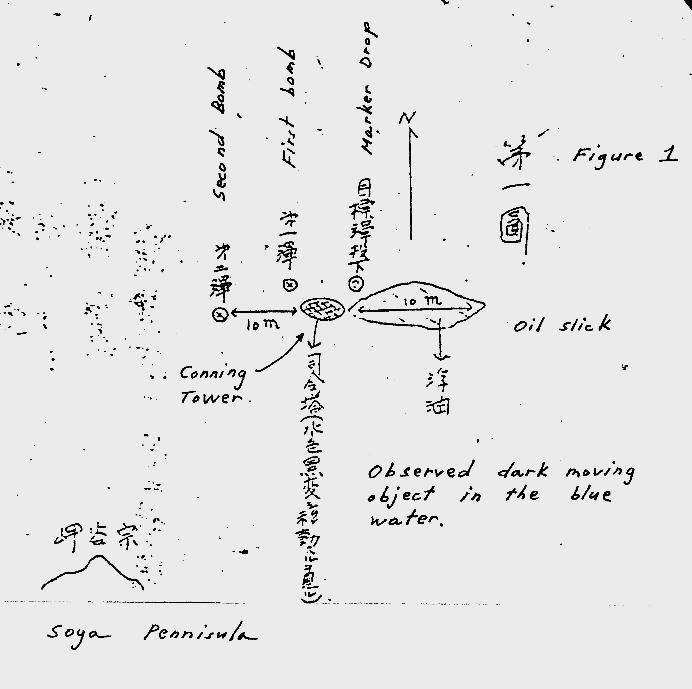 Second Bomb
First bomb
Marker Drop
N
第一圖
Figure 1
第二彈
第一彈
目標彈投下
10 m
10 m
Oil slick
Conning
Tower.
司令塔(水色黒変移動
浮油
Observed dark moving
object in the blue
water.
宗谷岬
Soya Pennisula